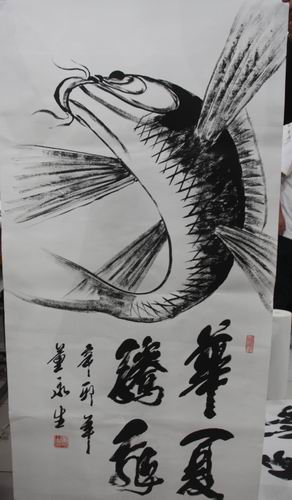 華夏
騰飛
辛卯年
董永生